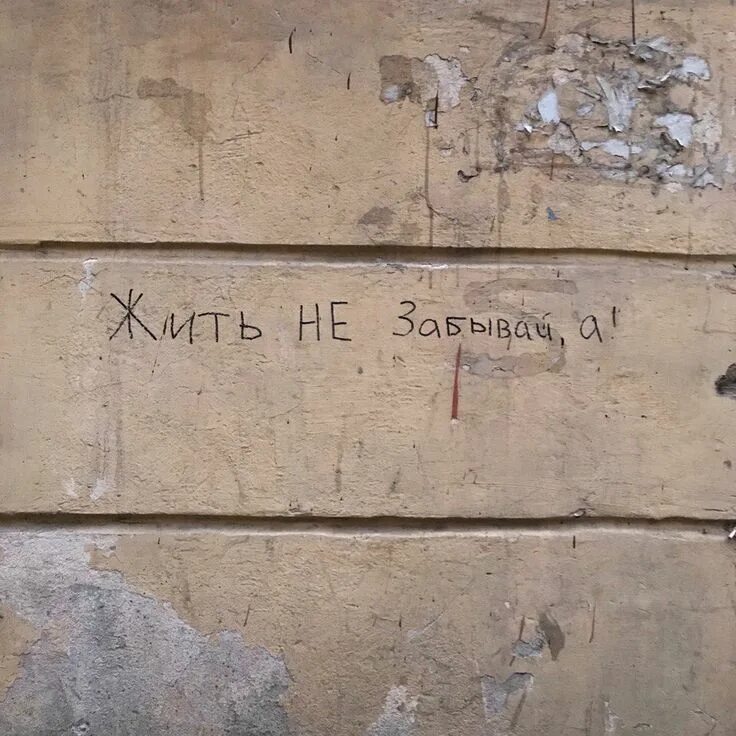 Жить НЕ Забывай, а!